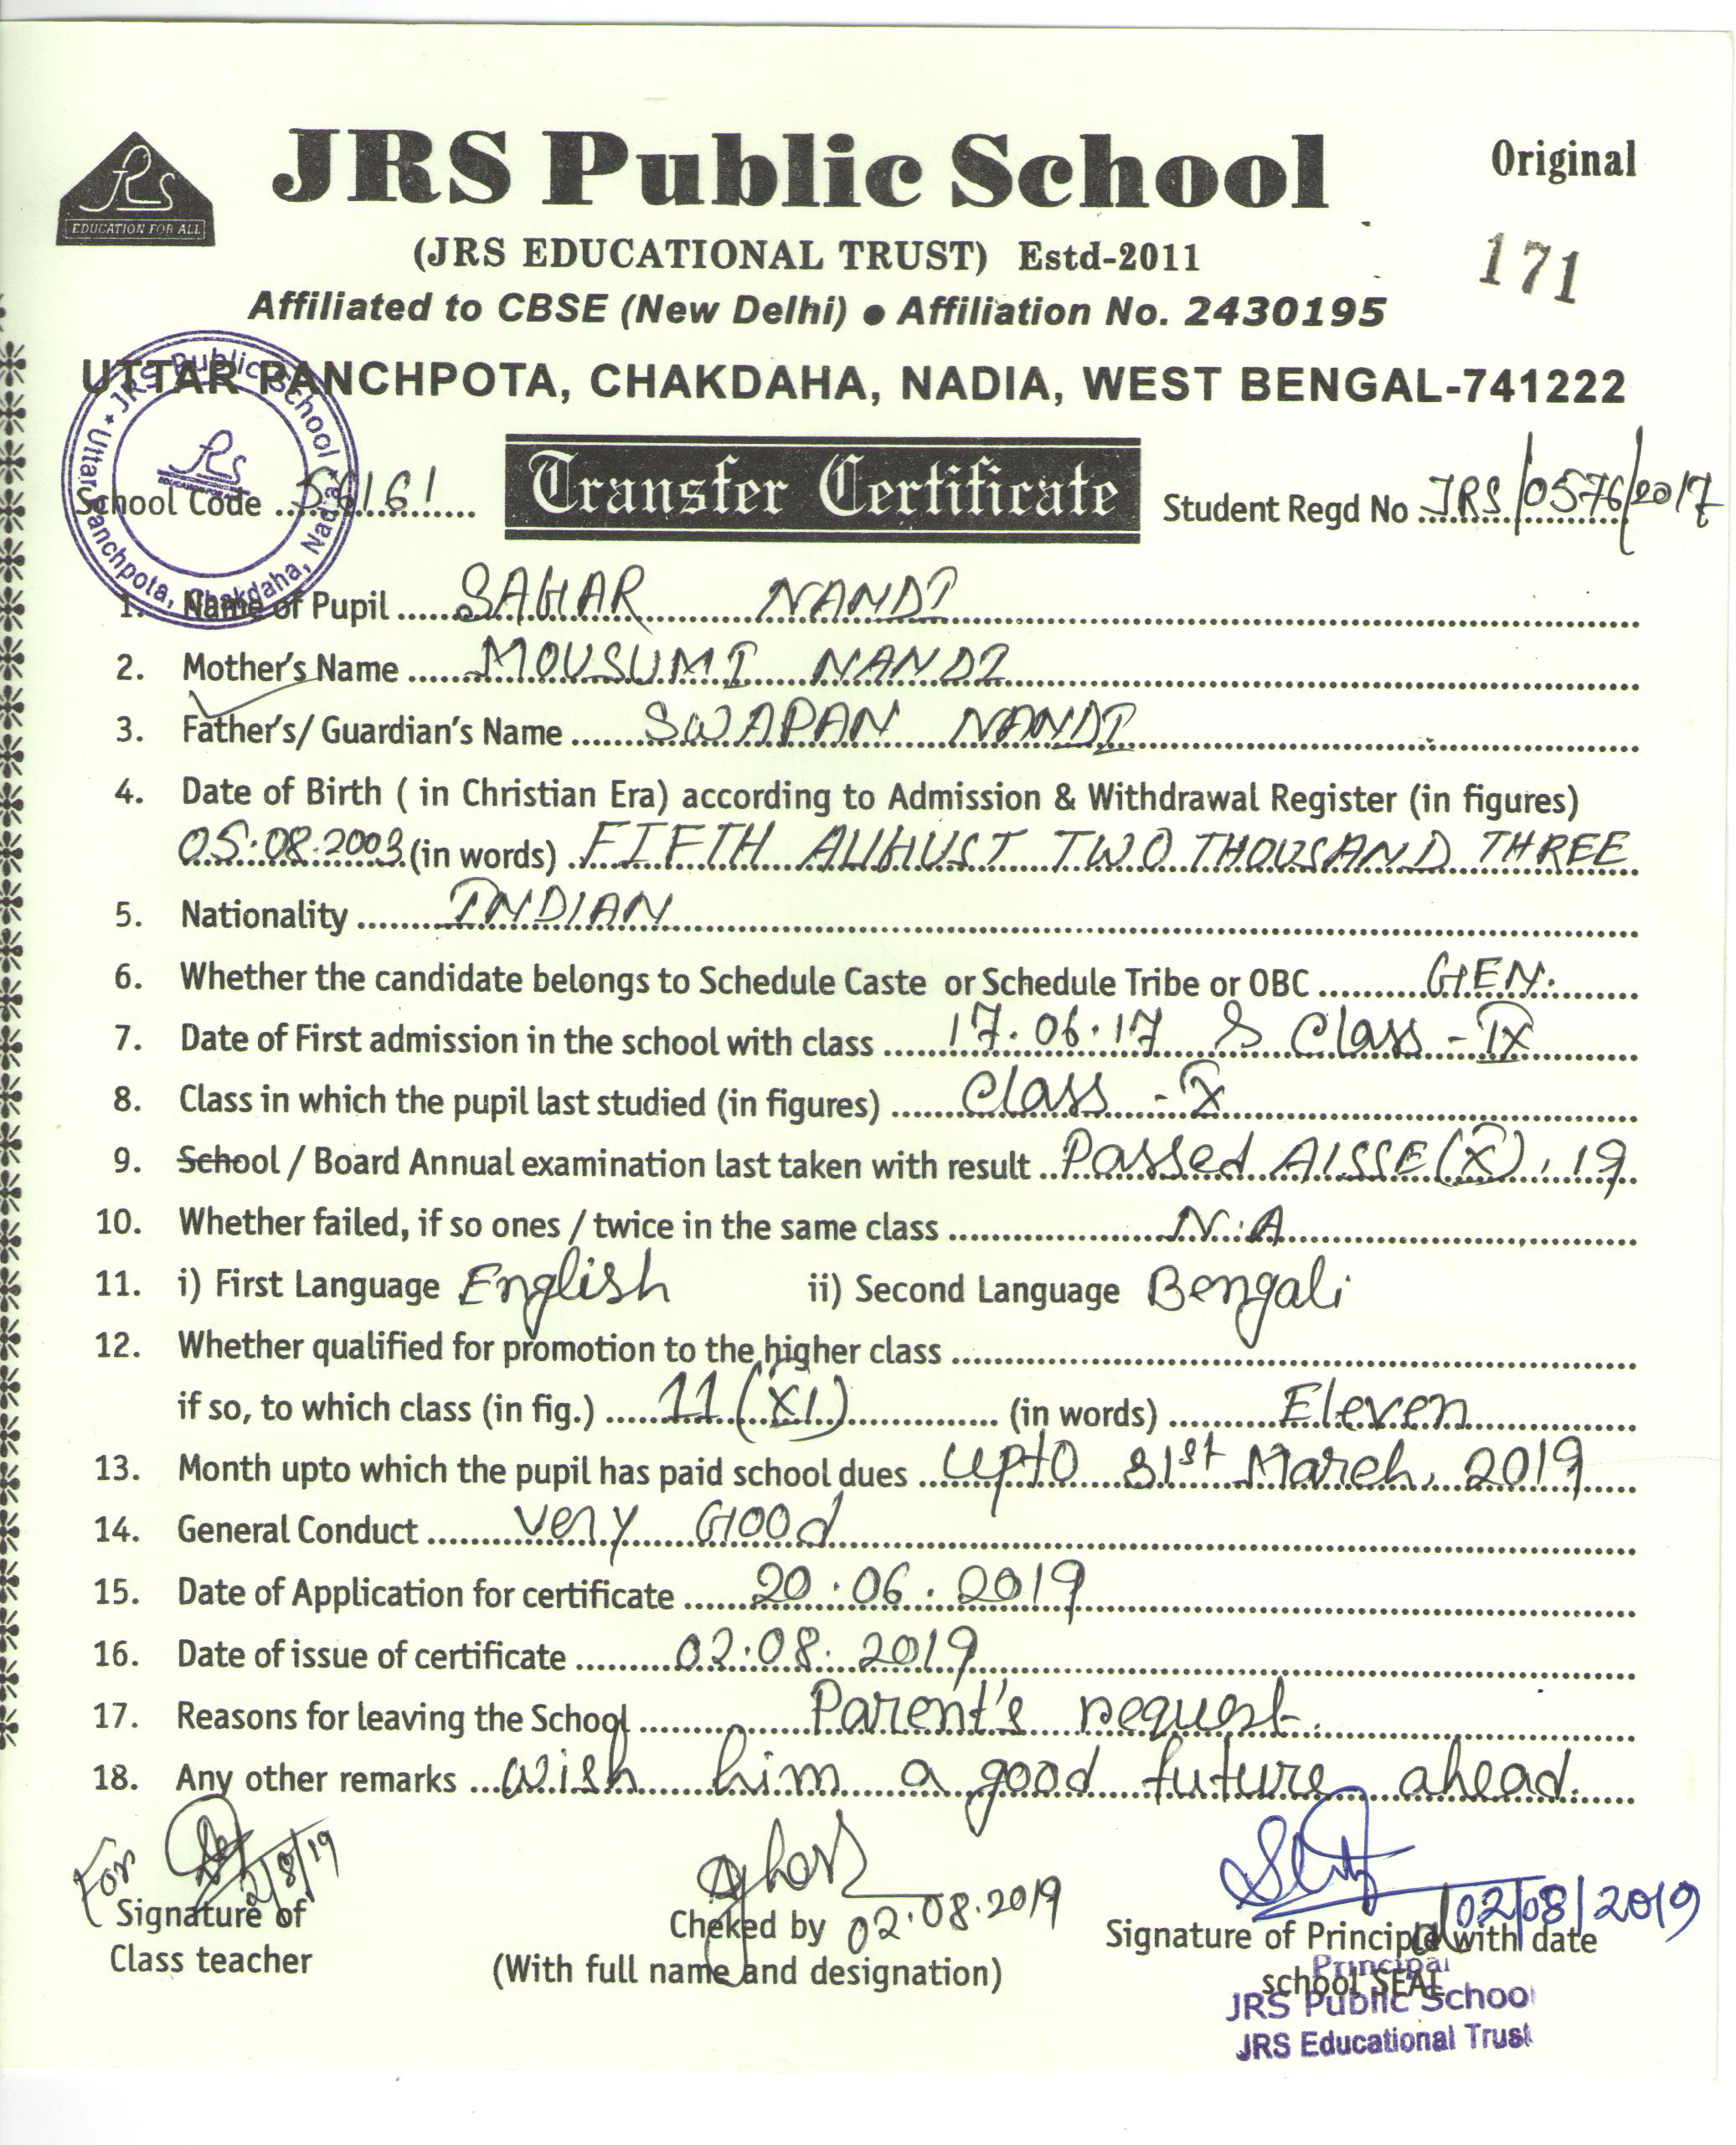 JRS Public School
Original
EDUCATION FOR ALL
(JRS EDUCATIONAL TRUST) Estd-2011
171
Affiliated to CBSE (New Delhi) ● Affiliation No. 2430195
UTTAR PANCHPOTA, CHAKDAHA, NADIA, WEST BENGAL-741222
JRS Public School * Uttar Panchpota, Chakdaha, Nadia
School Code 56161
Transfer Certificate
Student Regd No JRS/0576/2017
1. Name of Pupil SAGAR NANDI
2. Mother's Name MOUSUMI NANDI
3. Father's/ Guardian's Name SWAPAN NANDI
4. Date of Birth ( in Christian Era) according to Admission & Withdrawal Register (in figures)
05.08.2003 (in words) FIFTH AUGUST TWO THOUSAND THREE
5. Nationality INDIAN
6. Whether the candidate belongs to Schedule Caste or Schedule Tribe or OBC GEN.
7. Date of First admission in the school with class 17.06.17 & Class - IX
8. Class in which the pupil last studied (in figures) Class - X
9. School / Board Annual examination last taken with result Passed AISSE(X), 19
10. Whether failed, if so ones / twice in the same class N.A
11. i) First Language English ii) Second Language Bengali
12. Whether qualified for promotion to the higher class
if so, to which class (in fig.) 11 (XI) (in words) Eleven
13. Month upto which the pupil has paid school dues upto 31st March, 2019
14. General Conduct Very Good
15. Date of Application for certificate 20.06.2019
16. Date of issue of certificate 02.08.2019
17. Reasons for leaving the School Parent's request.
18. Any other remarks Wish him a good future ahead.
For 2/8/19
Signature of
Class teacher
Cheked by 02.08.2019
(With full name and designation)
02/08/2019
Signature of Principle with date
school SEAL
Principal
JRS Public School
JRS Educational Trust